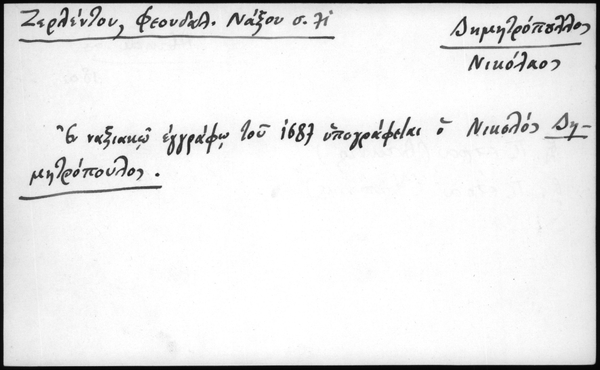 Ζερλέντου, Φεουδαλ. Νάξου σ.
Δημητρόπουλλος
Νικόλαος
Ἐν ναξιακῷ ἐγγράφῳ τοῦ 1687 ὑπογράφεται ὁ Νικολός Δη-
μητρόπουλος.